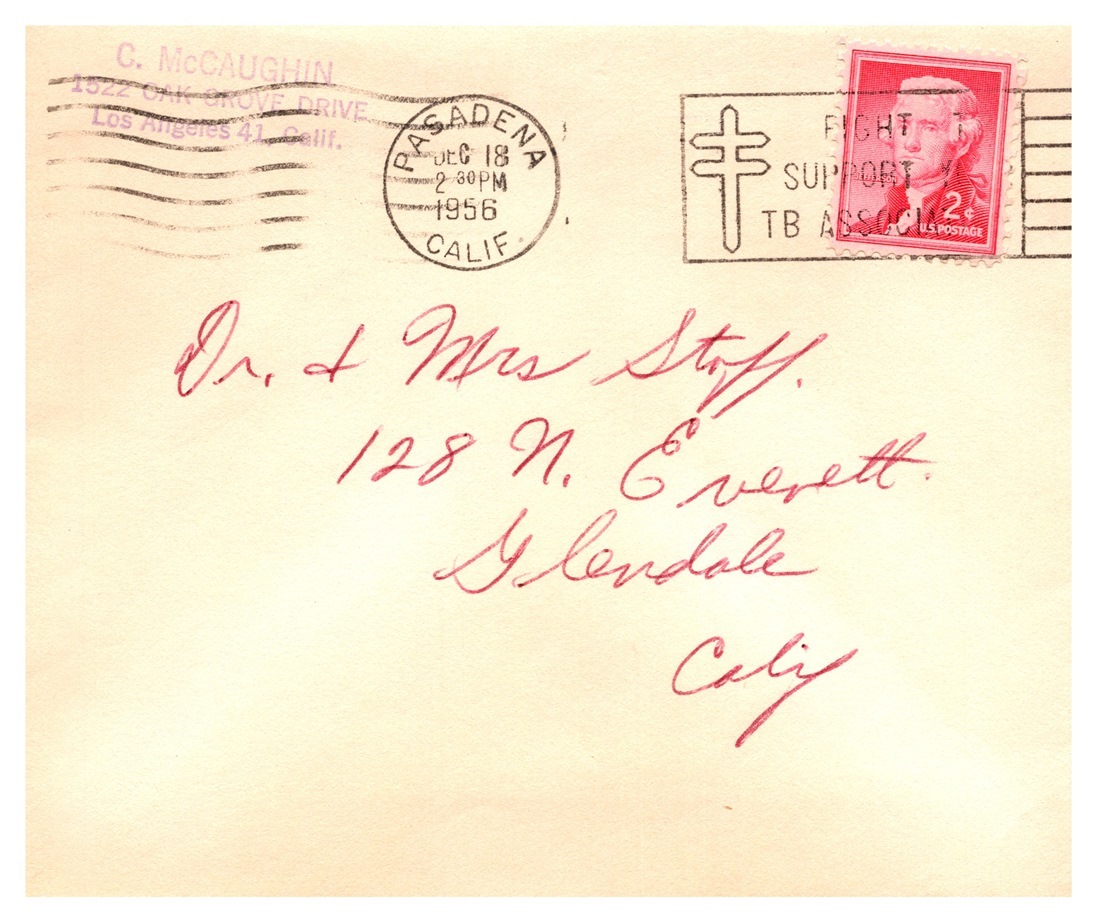 C. McCAUGHIN
1522 OAK GROVE DRIVE
Los Angeles 41, Calif.
PASADENA
DEC 18
2 30 PM
1956
CALIF.
FIGHT T
SUPPORT Y
TB ASSOCIA
2¢
U.S. POSTAGE
Dr. & Mrs Stoff.
128 N. Everett.
Glendale
Calif